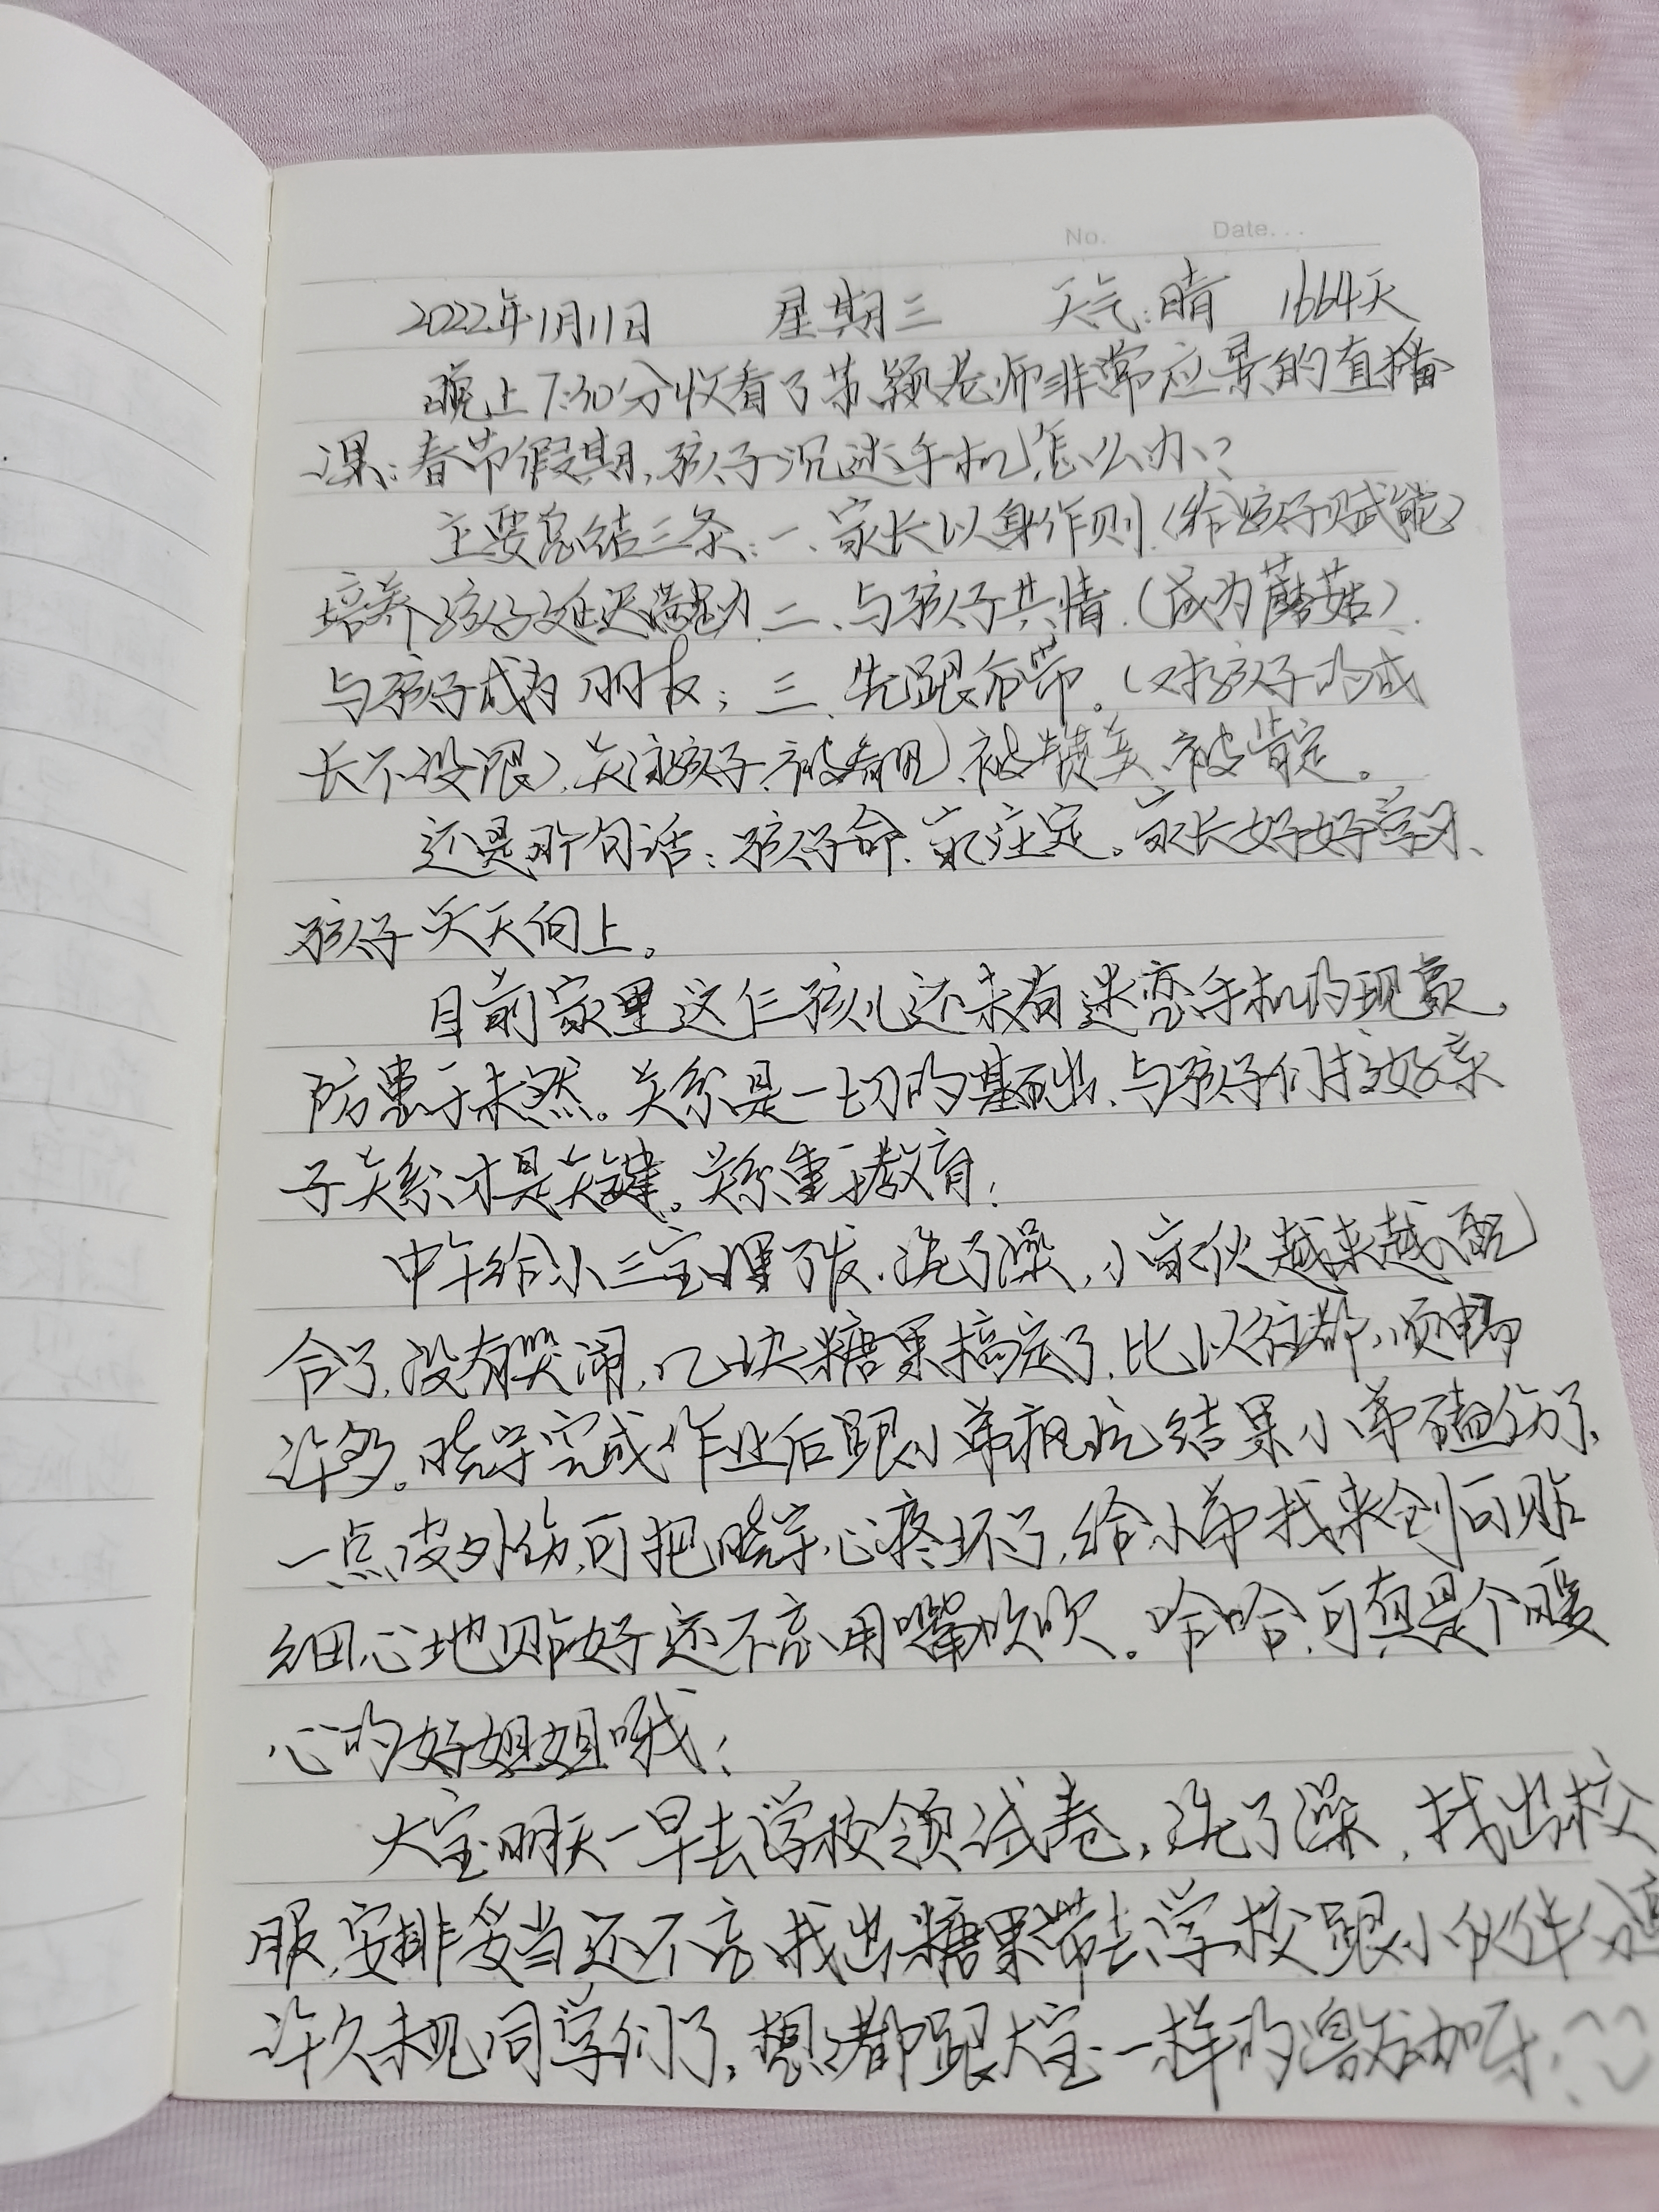 No. Date...
2022年1月11日 星期三 天气:晴 1664天
晚上7:30分收看了苏颖老师非常应景的直播
课:春节假期,孩子沉迷手机怎么办?
主要总结三条:一、家长以身作则(给孩子赋能)
培养孩子延迟满足力 二、与孩子共情.(成为蘑菇).
与孩子成为朋友; 三、先跟后带。(对孩子的成
长不设限)、关注孩子、被看见、被赞美、被肯定。
还是那句话:孩子命、家注定。家长好好学习、
孩子天天向上。
目前家里这仨孩儿还未有迷恋手机的现象,
防患于未然。关系是一切的基础、与孩子们搞好亲
子关系才是关键。关系重于教育!
中午给小三宝理了发、洗了澡,小家伙越来越配
合了,没有哭闹,几块糖果搞定了,比以往都顺畅
许多。晓宇完成作业后跟小弟疯玩结果小弟磕伤了、
一点皮外伤,可把晓宇心疼坏了,给小弟找来创可贴
细心地贴好还不忘用嘴吹吹。哈哈,可真是个暖
心的好姐姐哦!
大宝明天一早去学校领试卷,洗了澡,找出校
服,安排妥当还不忘找出糖果带去学校跟小伙伴分享
许久未见同学们了,想必都跟大宝一样的激动加开心